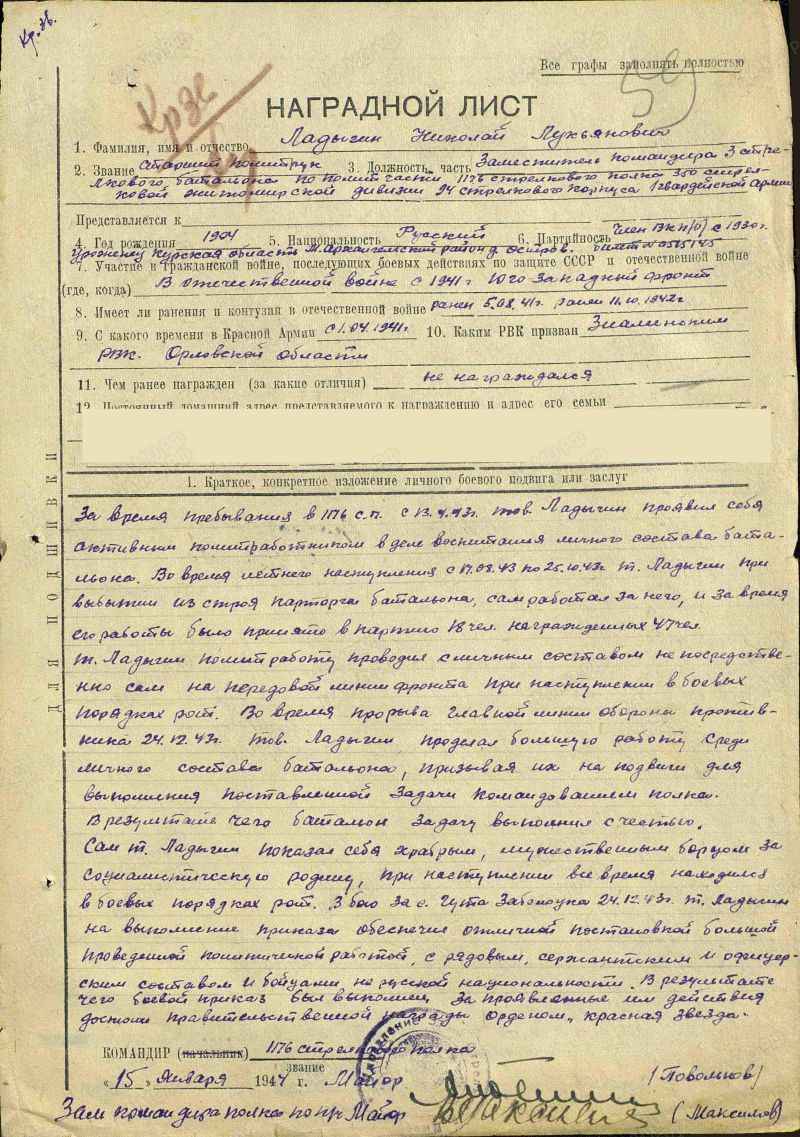 Кр. зв.
Все графы заполнять полностью
59
Кр Зв
НАГРАДНОЙ ЛИСТ
1. Фамилия, имя и отчество Ладыгин Николай Лукьянович
2. Звание Старший политрук 3. Должность, часть Заместитель командира 3 стре-
лкового батальона по политчасти 1176 стрелкового полка 350 стрел-
ковой Житомирской дивизии 94 стрелкового корпуса 1 гвардейской Армии
Представляется к
4. Год рождения 1904 5. Национальность Русский 6. Партийность Член ВКП(б) с 1930г.
Уроженец Курская область М. Архангельский район д. Остров. билет №
7. Участие в гражданской войне, последующих боевых действиях по защите СССР и отечественной войне
(где, когда) В отечественной войне с 1941г Юго-Западный фронт
8. Имеет ли ранения и контузии в отечественной войне ранен 5.08.41г ранен 11.10.1942г
9. С какого времени в Красной Армии с 1.04.1941г. 10. Каким РВК призван
РВК. Орловской области
11. Чем ранее награжден (за какие отличия) не награждался
12. Постоянный домашний адрес представляемого к награждению и адрес его семьи
1. Краткое, конкретное изложение личного боевого подвига или заслуг
За время пребывания в 1176 с.п. с 13.4.43г. тов. Ладыгин проявил себя
активным политработником в деле воспитания личного состава бата-
льона. Во время летнего наступления с 17.08.43 по 25.10.43г. т. Ладыгин при
выбытии из строя парторга батальона, сам работал за него, и за время
его работы было принято в партию 18 чел. награжденных 47 чел
т. Ладыгин политработу проводил с личным составом не посредстве-
нно сам на передовой линии фронта при наступлении в боевых
порядках рот. Во время прорыва главной линии обороны против-
ника 24.12.43г. тов. Ладыгин проделал большую работу среди
личного состава батальона, призывая их на подвиги для
выполнения поставленной задачи командованием полка.
В результате чего батальон задачу выполнил с честью.
Сам т. Ладыгин показал себя храбрым, мужественным борцом за
социалистическую родину, при наступлении все время находился
в боевых порядках рот. В бою за с. Гута Забелоцка 24.12.43г. т. Ладыгин
на выполнение приказа обеспечил отличной постановкой большой
проведенной политической работой, с рядовым, сержантским и офицер-
ским составом и бойцами не русской национальности. В результате
чего боевой приказ был выполнен. За проявленные им действия
достоин правительственной награды Орденом „Красная Звезда".
КОМАНДИР (начальник) 1176 стрелкового полка
звание
„15" января 1944 г. Майор (Повольнов)
Зам командира полка по пч Майор (Максимов)
ДЛЯ ПОДШИВКИ